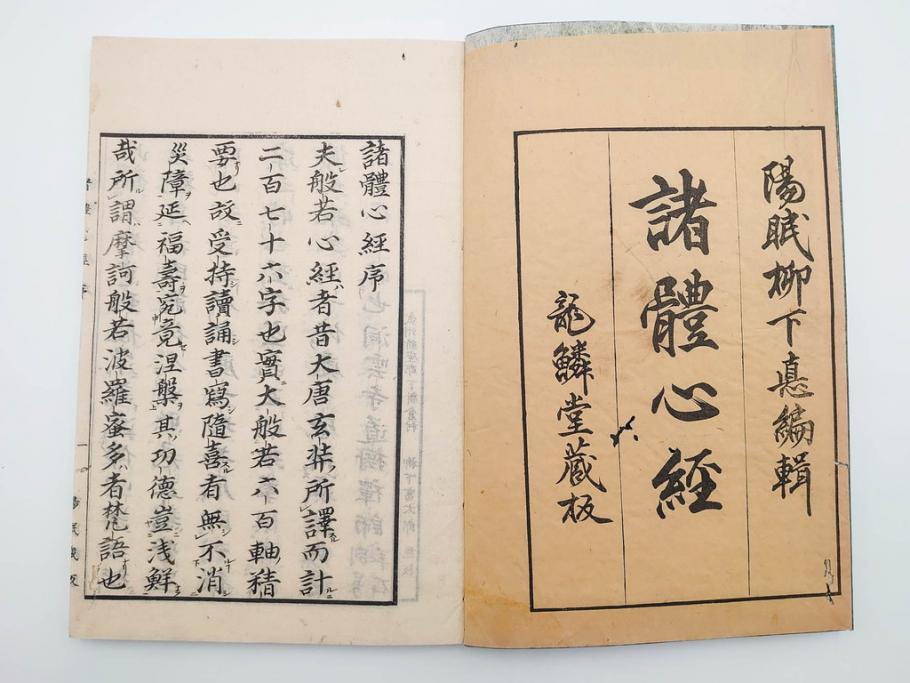 陽眠柳下惪編輯
諸體心經
龍鱗堂蔵板
諸體心經序
夫般若心經者昔大唐玄奘所譯而計
二百七十六字也實大般若六百軸精
要也故受持讀誦書寫隨喜者無不消
災障延福壽究竟涅槃其功德豈浅鮮
哉所謂摩訶般若波羅蜜多者梵語也